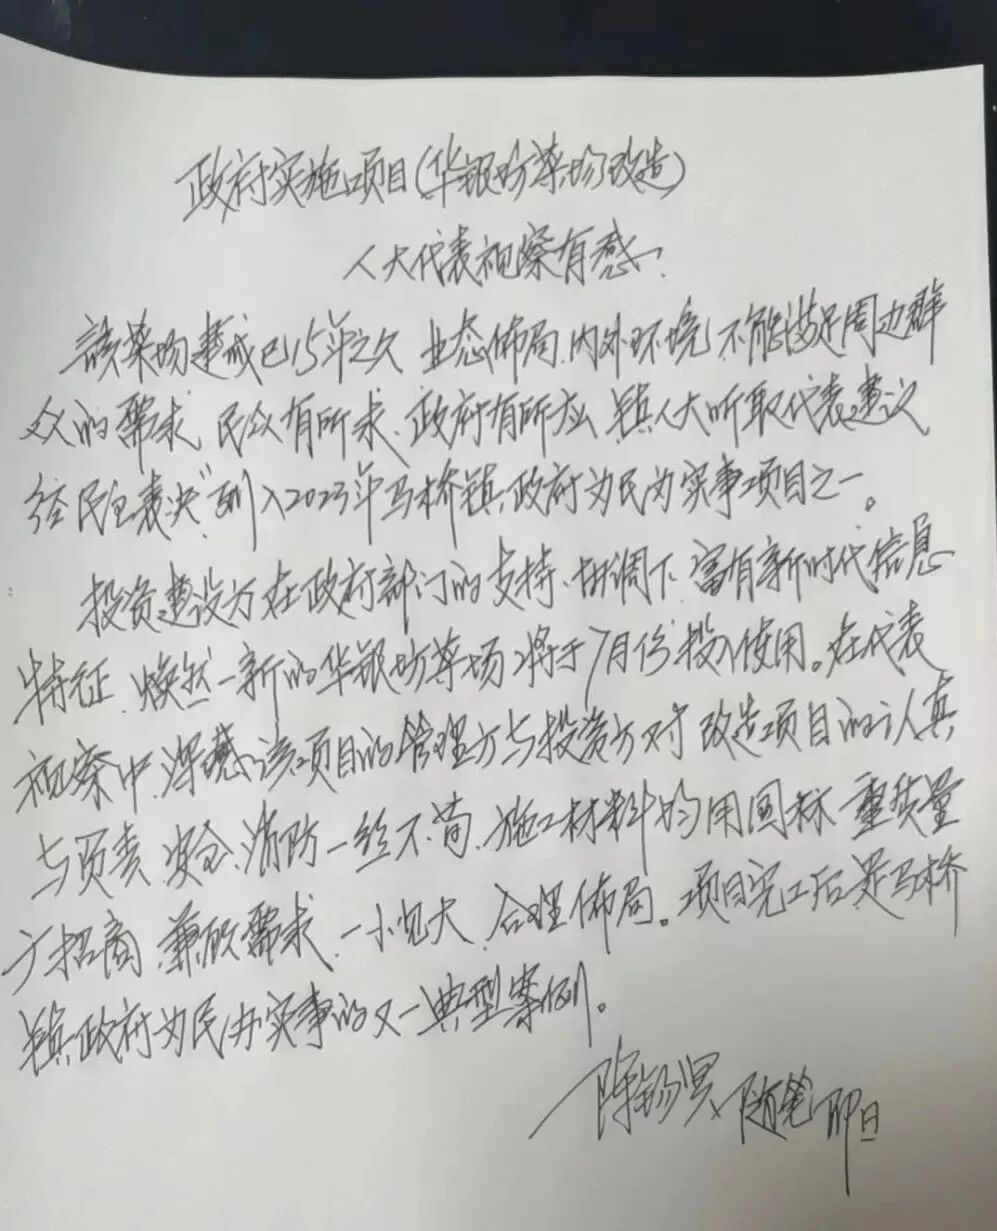 政府实施项目(华银坊菜场改造)
人大代表视察有感.
该菜场建成已15年之久 业态佈局、内外环境 不能满足周边群
众的需求、民众有所求、政府有所应 镇人大听取代表建议
经民主表决"列入2023年马桥镇政府为民办实事项目之一。
投资建设方在政府部门的支持、协调下、富有新时代信息
特征、焕然一新的华银坊菜场将于7月份投入使用。在代表
视察中、深感该项目的管理方与投资方对 改造项目的认真
与负责、安全、消防一丝不苟、施工材料均用国标 重质量
广招商、兼顾需求、一小见大、合理佈局。项目完工后是马桥
镇政府为民办实事的又一典型案例。
陈锡 随笔 即日